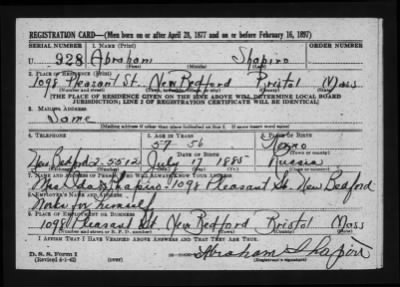 REGISTRATION CARD—(Men born on or after April 28, 1877 and on or before February 16, 1897)
SERIAL NUMBER 1. NAME (Print) ORDER NUMBER
U 928 Abraham Shapiro
(First) (Middle) (Last)
2. PLACE OF RESIDENCE (Print)
1098 Pleasant St. New Bedford Bristol Mass
(Number and street) (Town, township, village, or city) (County) (State)
[THE PLACE OF RESIDENCE GIVEN ON THE LINE ABOVE WILL DETERMINE LOCAL BOARD
JURISDICTION; LINE 2 OF REGISTRATION CERTIFICATE WILL BE IDENTICAL]
3. MAILING ADDRESS
Same
(Mailing address if other than place indicated on line 2. If same insert word same)
4. TELEPHONE 5. AGE IN YEARS 6. PLACE OF BIRTH
57 56
DATE OF BIRTH
New Bedford 2-5512 July 17 1885 Russia
7. NAME AND ADDRESS OF PERSON WHO WILL ALWAYS KNOW YOUR ADDRESS
Mrs Ida Shapiro - 1098 Pleasant St. New Bedford
8. EMPLOYER'S NAME AND ADDRESS
Works for himself
9. PLACE OF EMPLOYMENT OR BUSINESS
1098 Pleasant St New Bedford Bristol Mass
(Number and street or R. F. D. number) (Town) (County) (State)
I AFFIRM THAT I HAVE VERIFIED ABOVE ANSWERS AND THAT THEY ARE TRUE.
D. S. S. Form 1
(Revised 4-1-42) (over) Abraham Shapiro
(Registrant's signature)